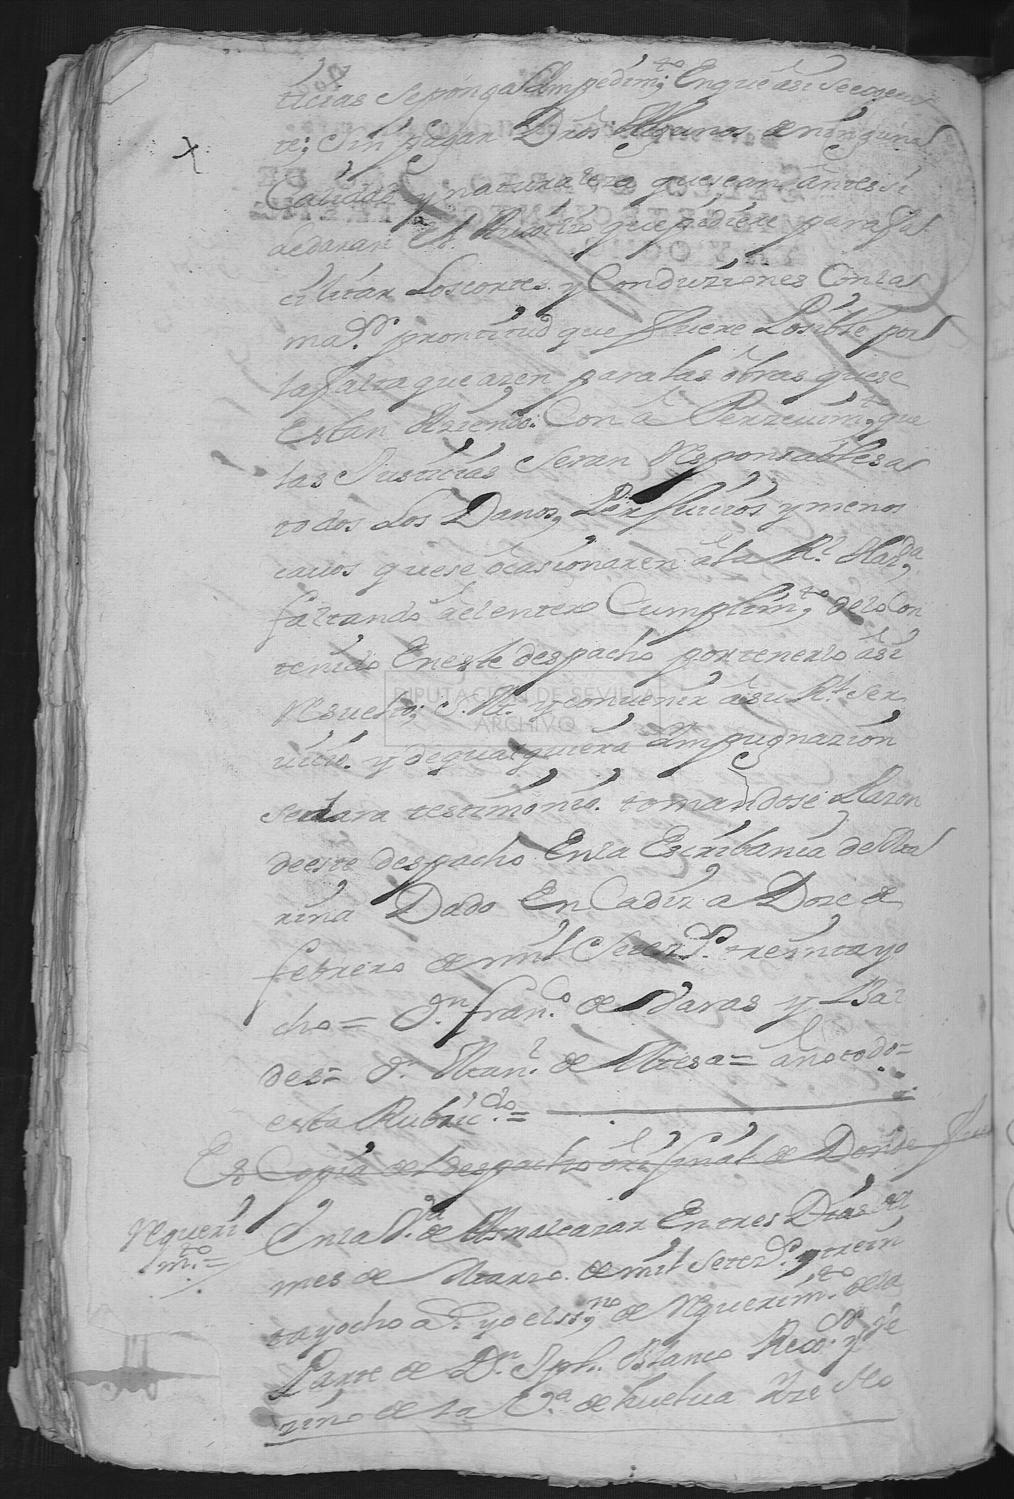 ticias se ponga Ympedim.to En que asi se execu
te; sin pagar Dros Algunos de ninguna
Calidad y naturaleza que sean antes si
le daran el Auxilio que pidiere para fa
cilitar Los cortes y Conduziones Con la
ma.or prontitud que fuere Posible por
la falta que azen para las obras que se
Estan Aziendo: Con aPerzeuim.to que
las Justicias Seran Responsables a
todos Los Danos, Perjuiuios y menos
cauos que se ocasionaren a la R.l Haz.da
faltando al entero Cumplim.to de lo Con
tenido En este despacho por tenerlo asi
Resuelto S. M. y conuenir a su R.l Ser
uicio. y de qualquiera Ympugnazion
se dara testimonio. tomandose Razon
de este despacho En la Escribania de Ma
rina Dado En Cadiz a Doze de
febrero de mil Setez.s treinta y o
cho = D.n fran.co de Varas y Bal
des = D. Man.l de Mesa = año todo =
esta Rubric.do =
Es Copia del despacho original de Donde
Requeri
m.to =
En la V.a de Aznalcazar En tres Dias del
mes de Marzo de mil Setez.s y trein
ta y ocho a.s yo el ss.no de Requerim.to de la
Parte de D.n Jph. Blanco Rexdor y ve
zino de la V.a de huelua
DIPUTACION DE SEVILLA
ARCHIVO